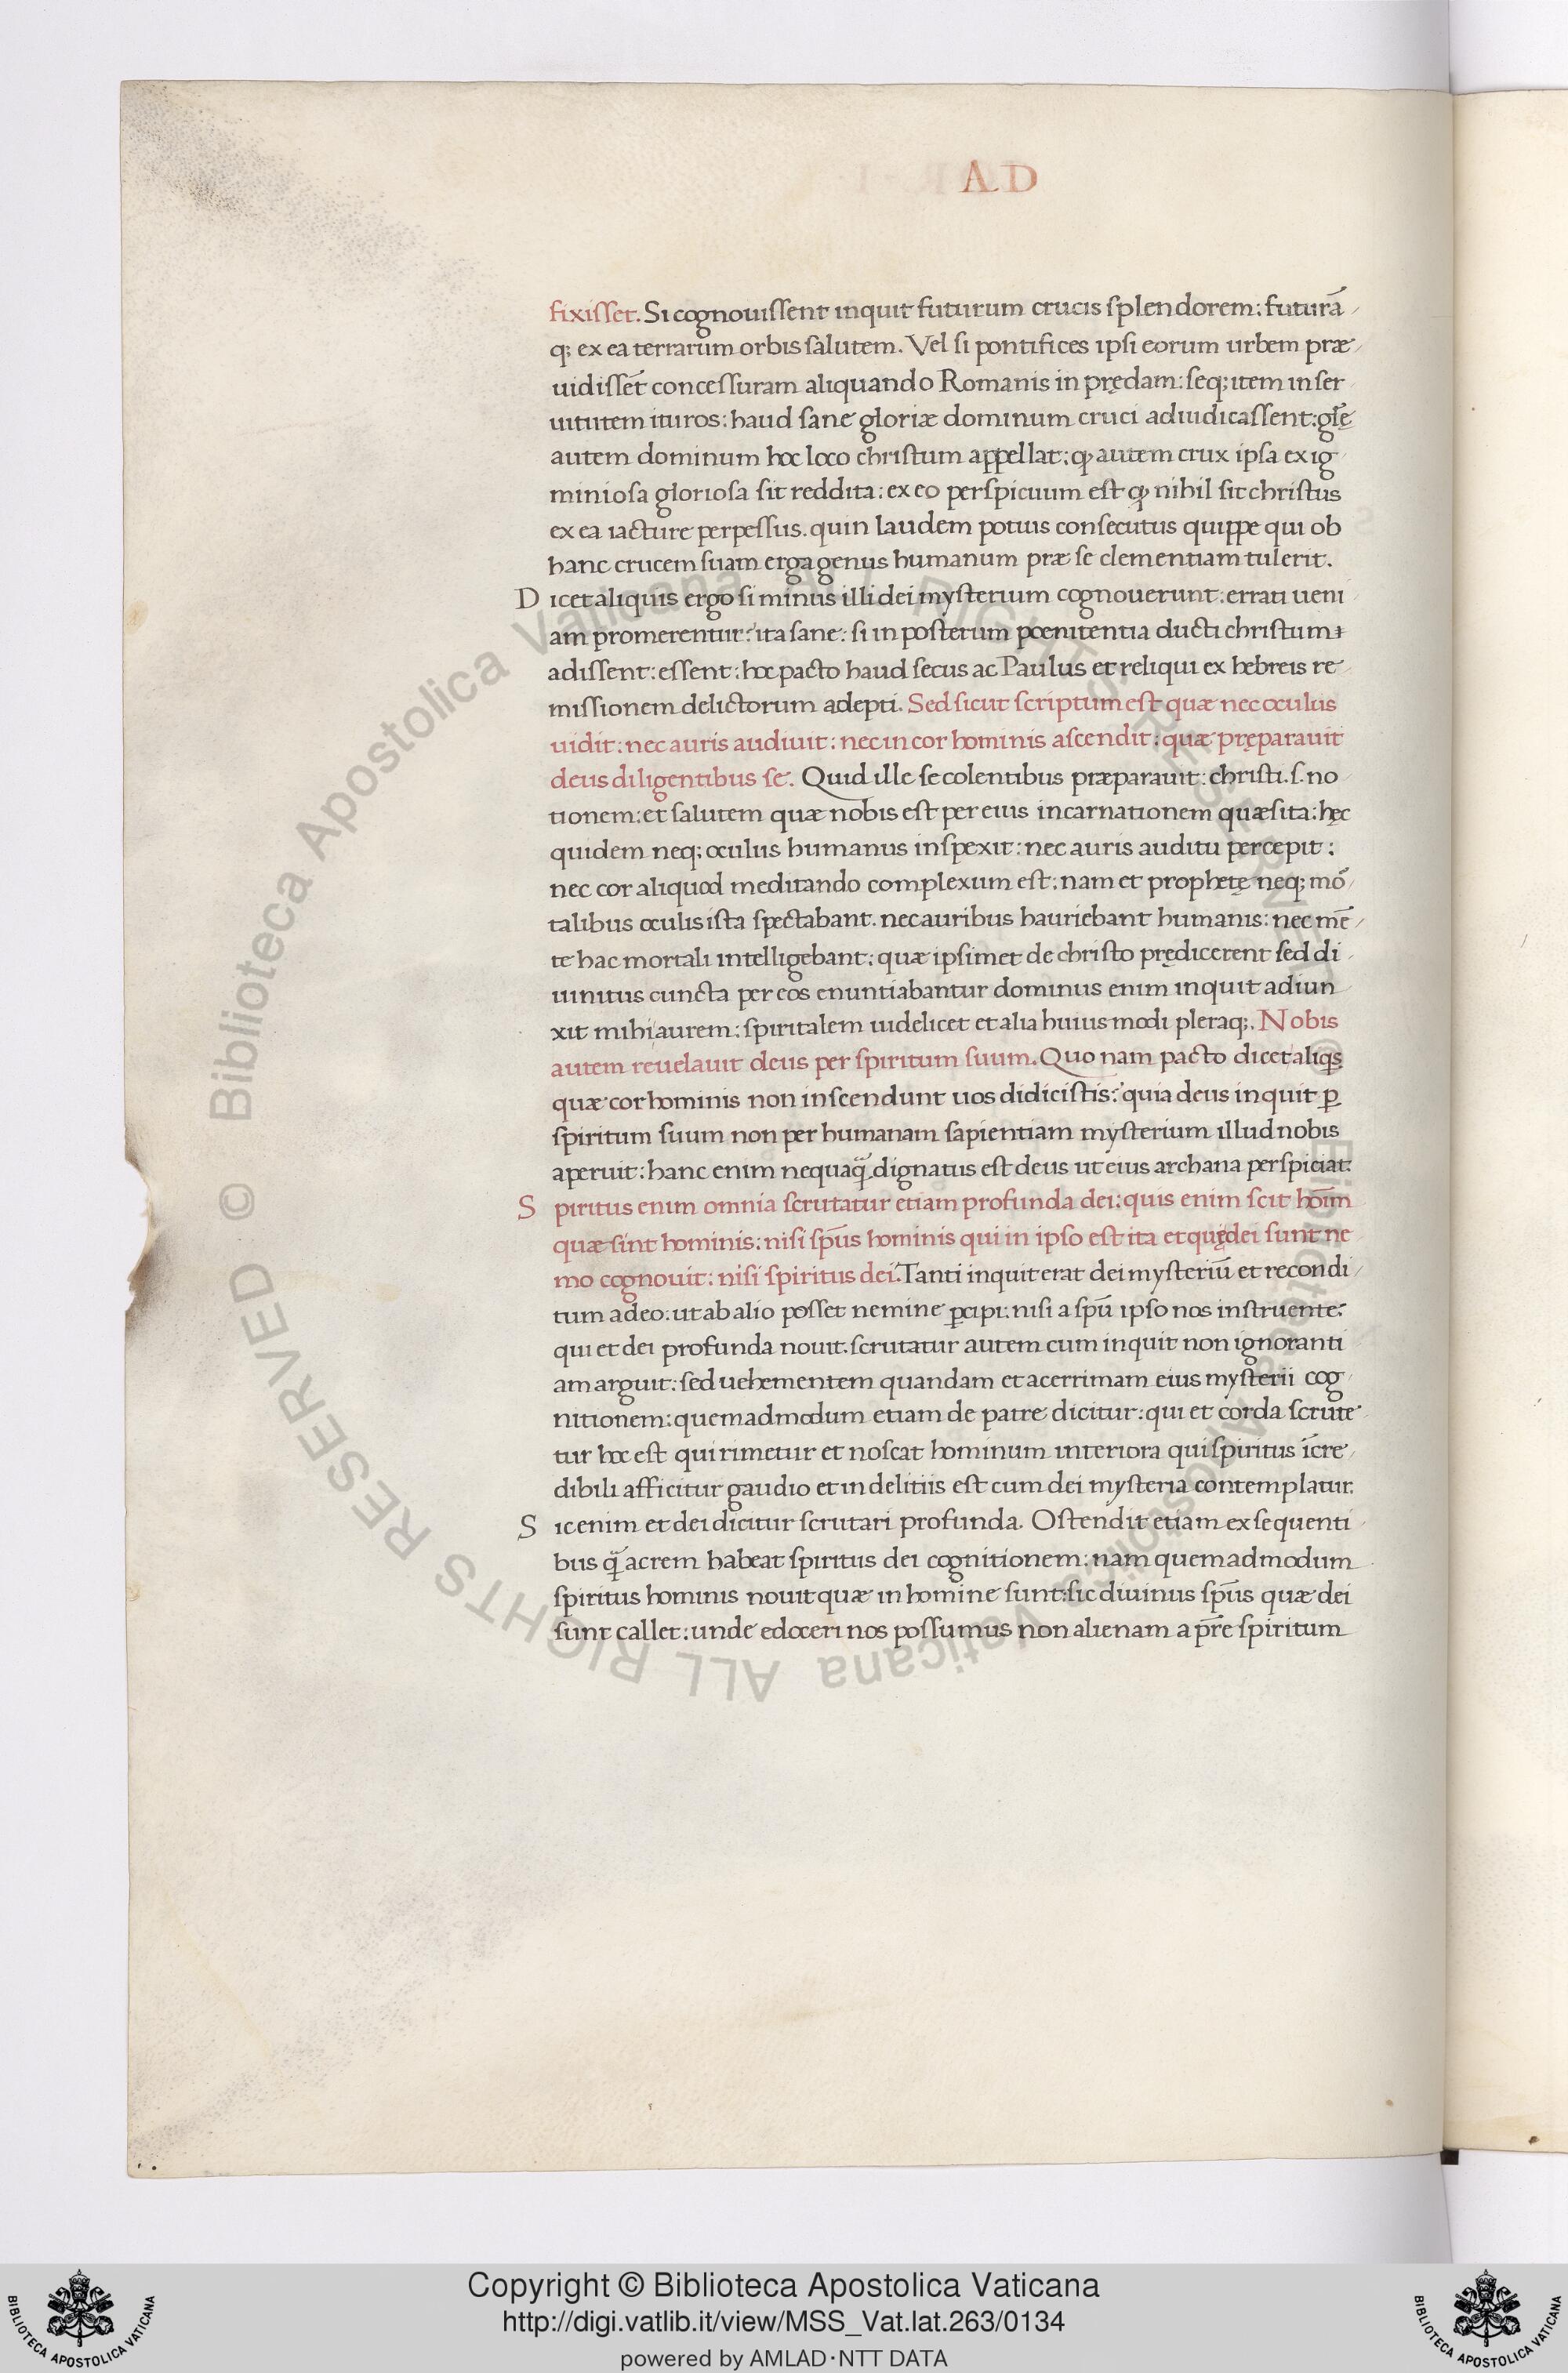 AD
fixisset. Si cognouissent inquit futurum crucis splendorem: futurā
q; ex ea terrarum orbis salutem. Vel si pontifices ipsi eorum urbem præ
uidissēt concessuram aliquando Romanis in prędam: seq; item in ser
uitutem ituros: haud sane gloriæ dominum cruci adiudicassent: gl̄ę
autem dominum hoc loco christum appellat: ꝙ autem crux ipsa ex ig
miniosa gloriosa sit reddita: ex eo perspicuum est ꝙ nihil sit christus
ex ea iacture perpessus. quin laudem potius consecutus quippe qui ob
hanc crucem suam erga genus humanum præ se clementiam tulerit.
D icet aliquis ergo si minus illi dei mysterium cognouerunt: errati ueni
am promerentur? ita sane: si in posterum poenitentia ducti christum
adissent: essent: hoc pacto haud secus ac Paulus et reliqui ex hebreis re
missionem delictorum adepti. Sed sicut scriptum est quæ nec oculus
uidit: nec auris audiuit: nec in cor hominis ascendit: quæ pręparauit
deus diligentibus se. Quid ille se colentibus præparauit: christi .s. no
tionem: et salutem quæ nobis est per eius incarnationem quæsita: hęc
quidem neq; oculus humanus inspexit: nec auris auditu percepit:
nec cor aliquod meditando complexum est: nam et prophetę neq; mō
talibus oculis ista spectabant. nec auribus hauriebant humanis: nec mē
te hac mortali intelligebant: quæ ipsimet de christo prędicerent sed di
uinitus cuncta per eos enuntiabantur dominus enim inquit adiun
xit mihi aurem: spiritalem uidelicet et alia huius modi pleraq;. Nobis
autem reuelauit deus per spiritum suum. Quo nam pacto dicet aliqs
quæ cor hominis non inscendunt uos didicistis? quia deus inquit ꝑ
spiritum suum non per humanam sapientiam mysterium illud nobis
aperuit: hanc enim nequaq̄ dignatus est deus ut eius archana perspiciat.
S piritus enim omnia scrutatur etiam profunda dei: quis enim scit hoīm
quæ sint hominis: nisi sp̄us hominis qui in ipso est ita et quę dei sunt ne
mo cognouit: nisi spiritus dei. Tanti inquit erat dei mysteriū et recondi
tum adeo. ut ab alio posset nemine ꝑcipi: nisi a sp̄u ipso nos instruente:
qui et dei profunda nouit. scrutatur autem cum inquit non ignoranti
am arguit: sed uehementem quandam et acerrimam eius mysterii cog
nitionem: quemadmodum etiam de patre dicitur: qui et corda scrute
tur hoc est qui rimetur et noscat hominum interiora qui spiritus īcre
dibili afficitur gaudio et in delitiis est cum dei mysteria contemplatur.
S ic enim et dei dicitur scrutari profunda. Ostendit etiam ex sequenti
bus q̄ acrem habeat spiritus dei cognitionem: nam quemadmodum
spiritus hominis nouit quæ in homine sunt: sic diuinus sp̄us quæ dei
sunt callet: unde edoceri nos possumus non alienam a pr̄e spiritum
© Biblioteca Apostolica Vaticana ALL RIGHTS RESERVED © Biblioteca Apostolica Vaticana ALL RIGHTS RESERVED
Copyright © Biblioteca Apostolica Vaticana
http://digi.vatlib.it/view/MSS_Vat.lat.263/0134
powered by AMLAD·NTT DATA
BIBLIOTECA APOSTOLICA VATICANA
BIBLIOTECA APOSTOLICA VATICANA